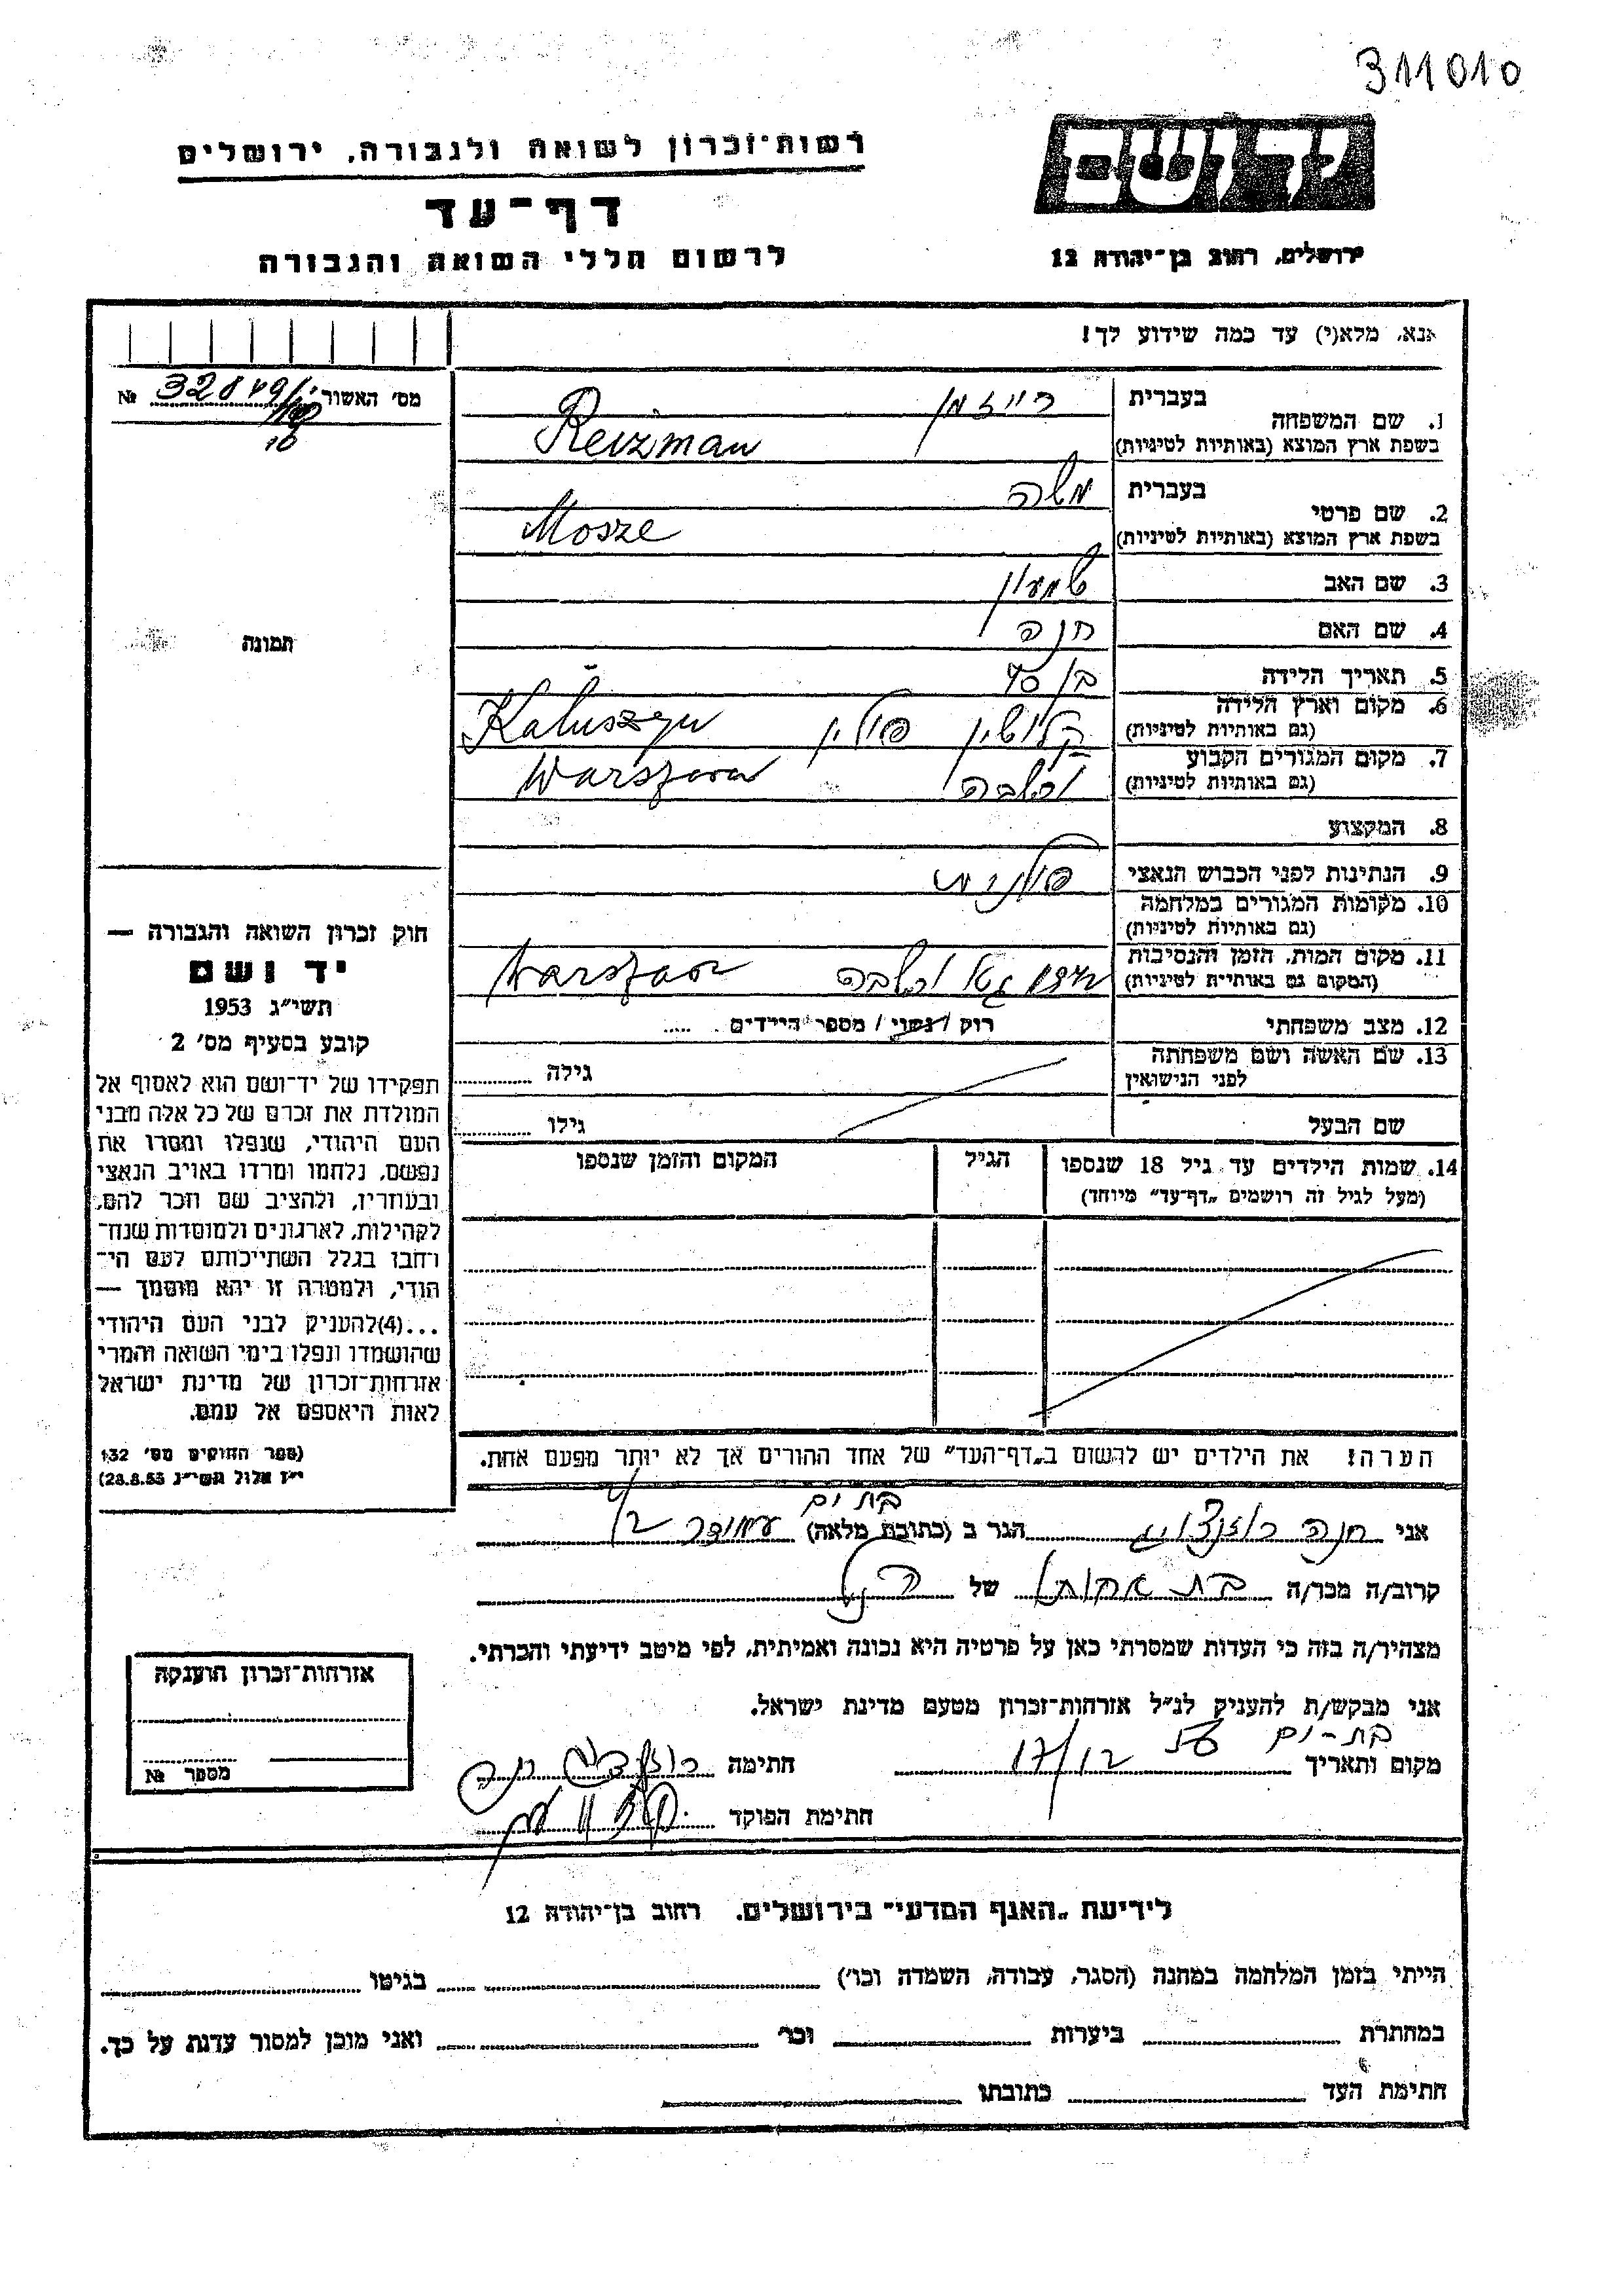 311010
יד ושם
ירושלים, רחוב בן־יהודה 12
רשות־זכרון לשואה ולגבורה, ירושלים
דף־עד
לרשום חללי השואה והגבורה
אנא, מלא(י) עד כמה שידוע לך!
מס' האשור № 32849/
1. שם המשפחה
בעברית רייזמן
בשפת ארץ המוצא (באותיות לטיניות) Reizman
2. שם פרטי
בעברית משה
בשפת ארץ המוצא (באותיות לטיניות) Mosze
3. שם האב שמעון
4. שם האם חנה
5. תאריך הלידה בן
6. מקום וארץ הלידה
(גם באותיות לטיניות) קלושין פולין Kałuszyn
7. מקום המגורים הקבוע
(גם באותיות לטיניות) ורשבה Warszawa
8. המקצוע
9. הנתינות לפני הכבוש הנאצי פולנית
10. מקומות המגורים במלחמה
(גם באותיות לטיניות)
11. מקום המות, הזמן והנסיבות
(המקום גם באותיות לטיניות) גטו ורשבה Warszawa
12. מצב משפחתי רוק / נשוי / מספר הילדים
13. שם האשה ושם משפחתה
לפני הנישואין גילה
שם הבעל גילו
14. שמות הילדים עד גיל 18 שנספו הגיל המקום והזמן שנספו
(מעל לגיל זה רושמים „דף־עד" מיוחד)
הערה! את הילדים יש לרשום ב„דף־העד" של אחד ההורים אך לא יותר מפעם אחת.
תמונה
חוק זכרון השואה והגבורה —
יד ושם
תשי"ג 1953
קובע בסעיף מס' 2
תפקידו של יד־ושם הוא לאסוף אל
המולדת את זכרם של כל אלה מבני
העם היהודי, שנפלו ומסרו את
נפשם, נלחמו ומרדו באויב הנאצי
ובעוזריו, ולהציב שם וזכר להם,
לקהילות, לארגונים ולמוסדות שנח־
רחבו בגלל השתייכותם לעם הי־
הודי, ולמטרה זו יהא מוסמך —
...(4)להעניק לבני העם היהודי
שהושמדו ונפלו בימי השואה והמרי
אזרחות־זכרון של מדינת ישראל
לאות היאספם אל עמם.
(ספר החוקים מס' 132
י"ז אלול תשי"ג 28.8.53)
בת ים
אני חנה הגר ב (כתובת מלאה)
קרוב/ה מכר/ה בת אחות של
מצהיר/ה בזה כי העדות שמסרתי כאן על פרטיה היא נכונה ואמיתית, לפי מיטב ידיעתי והכרתי.
אני מבקש/ת להעניק לנ"ל אזרחות־זכרון מטעם מדינת ישראל.
בת-ים
מקום ותאריך 17/12 חתימה חנה
חתימת הפוקד
אזרחות־זכרון הוענקה
מספר №
לידיעת „האגף המדעי" בירושלים, רחוב בן־יהודה 12
הייתי בזמן המלחמה במחנה (הסגר, עבודה, השמדה וכו') בגיטו
במחתרת ביערות וכו' ואני מוכן למסור עדות על כך.
חתימת העד כתובתו